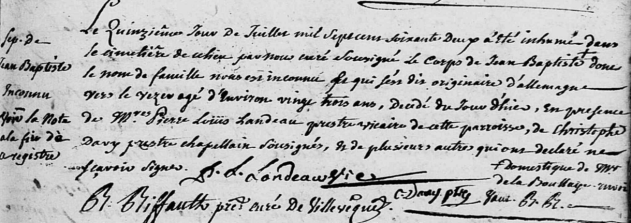 Sep. de
Jean Baptiste
Inconnu
Voir la Note
a la fin de
ce registre
Le Quinzième Jour de Juillet mil Sept cent Soixante Deux a été inhumé dans
le cimetière de ce lieu par nous curé Sousigné Le Corps de Jean Baptiste dont
le nom de famille nous est inconnu qui s'est dit originaire d'allemagne
vers le agé d'Environ vingt trois ans, Decedé du Jour d'hier, En presence
de Mres Pierre Louis Landeau prestre vicaire de cette parroisse, de Christophe
Davy prestre chapellain Sousignés, et de plusieurs autres qui ont declaré ne
scavoir signer.
Domestique de Mr
de la Boullaye
P. L. Landeau Vic
C. Davy ptre
R. Riffault ptre curé de Villevêque